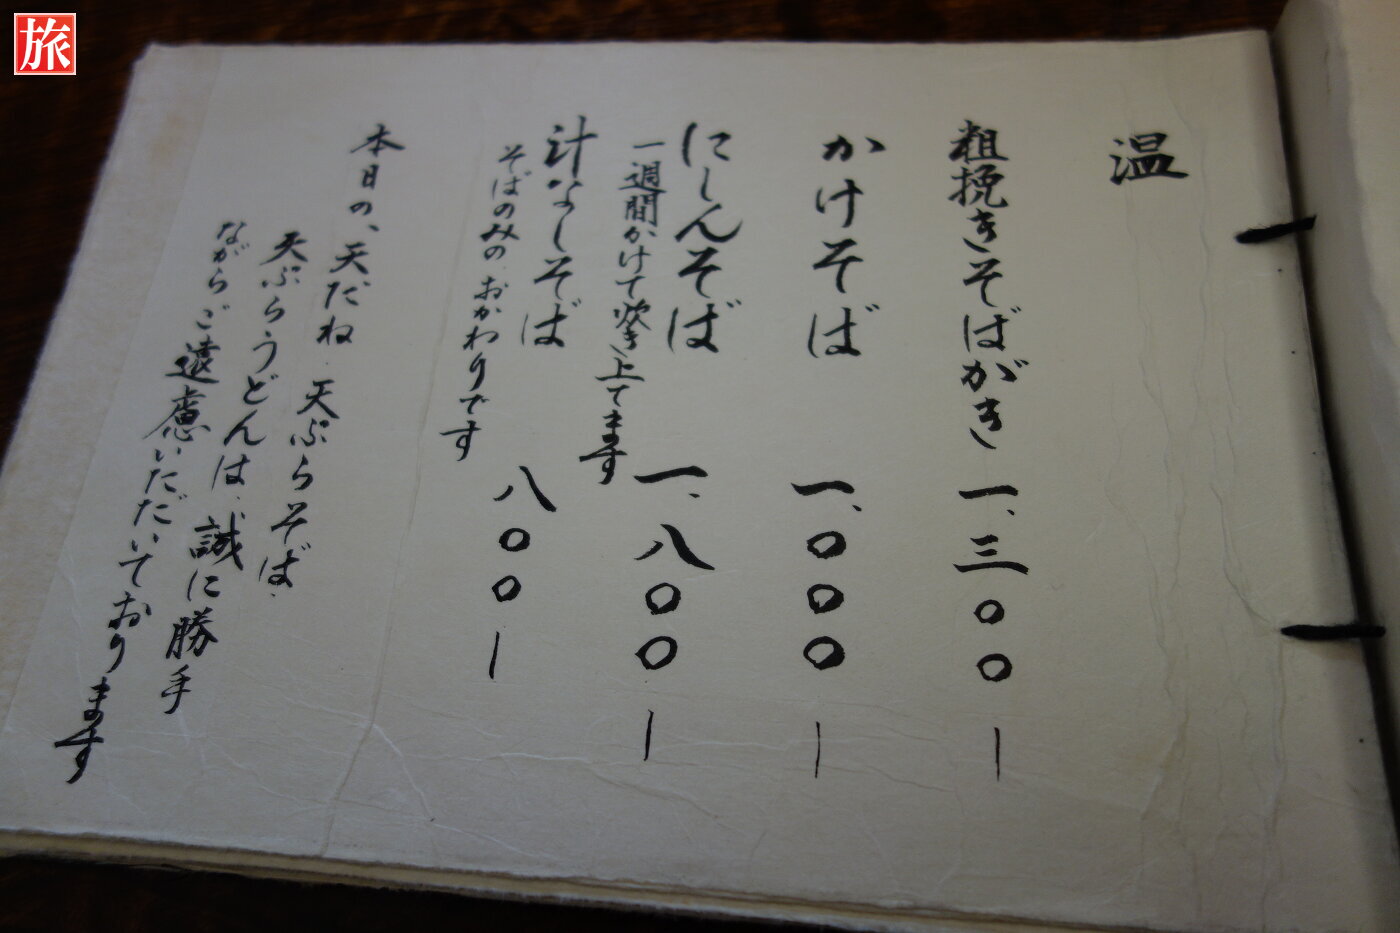 旅
温
粗挽きそばがき 一、三〇〇ー
かけそば 一、〇〇〇ー
にしんそば 一、八〇〇ー
一週間かけて炊き上てます
汁なしそば 八〇〇ー
そばのみの、おかわりです
本日の、天だね、天ぷらそば、
天ぷらうどんは、誠に勝手
ながらご遠慮いただいております